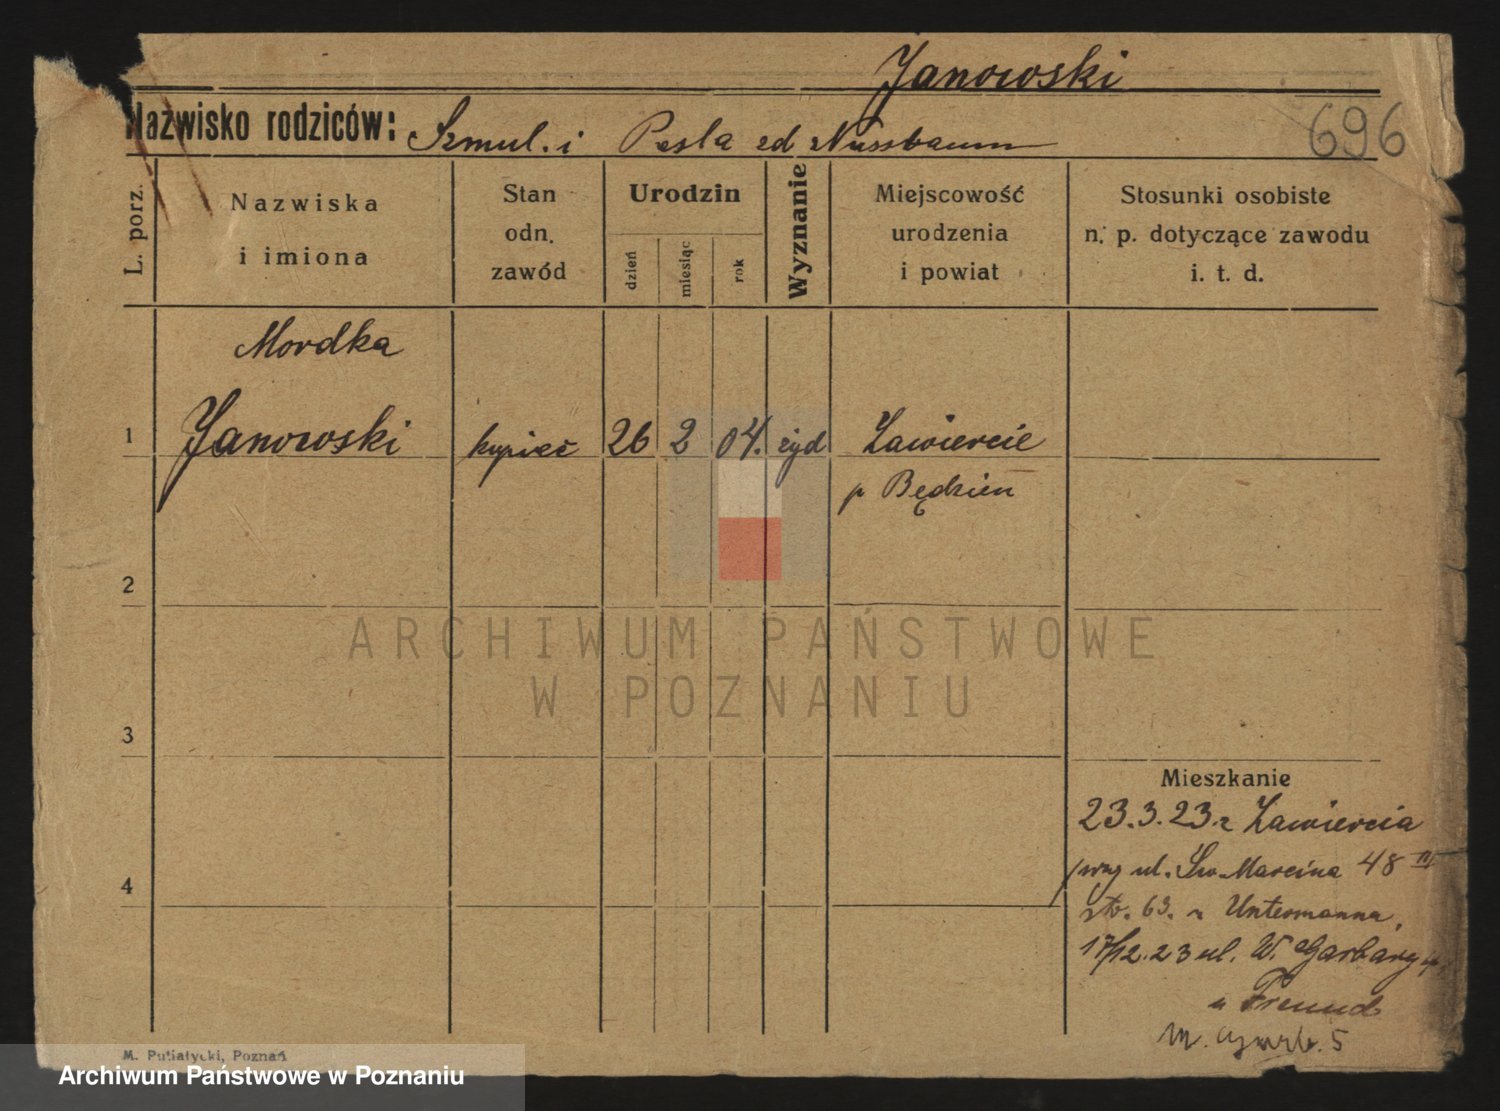 Janowski
Nazwisko rodziców: Szmul. i Pesla zd Nussbaum
696
L. porz.
Nazwiska
i imiona
Stan
odn.
zawód
Urodzin
dzień
miesiąc
rok
Wyznanie
Miejscowość
urodzenia
i powiat
Stosunki osobiste
n. p. dotyczące zawodu
i. t. d.
Mordka
1 Janowski kupiec 26 2 04. żyd Zawiercie
p Będzien
2
3
4
Mieszkanie
23.3.23. z Zawiercia
ul. Św. Marcina 48 III
63. u Untermanna
17/12.23 ul. W. Garbary
u Freund
M. 5
M. Putiatycki, Poznań
ARCHIWUM PAŃSTWOWE
W POZNANIU
Archiwum Państwowe w Poznaniu